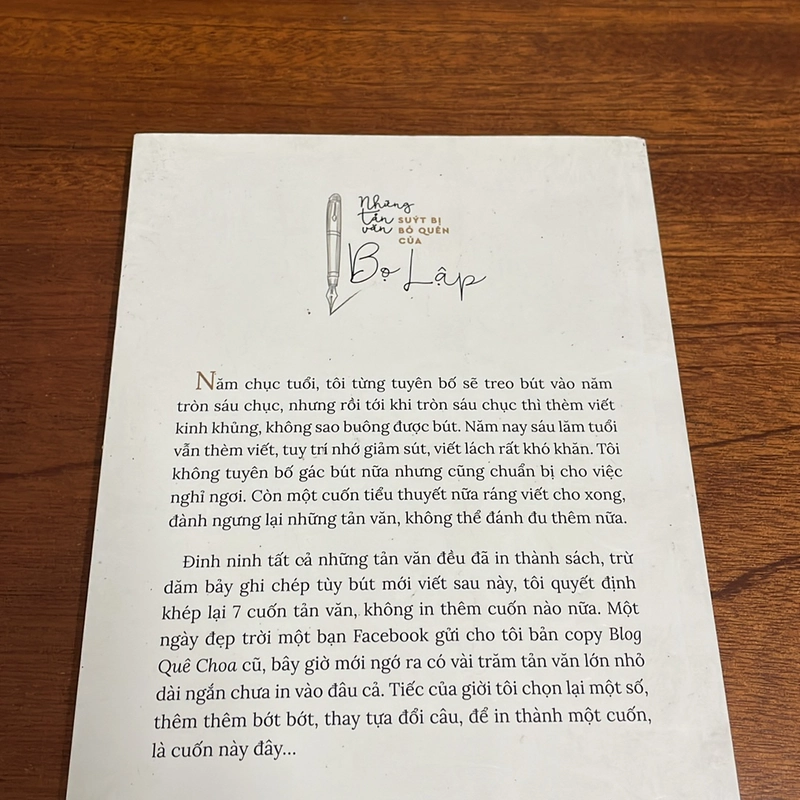 Những
tản
văn
SUÝT BỊ
BỎ QUÊN
CỦA
Bọ Lập
Năm chục tuổi, tôi từng tuyên bố sẽ treo bút vào năm
tròn sáu chục, nhưng rồi tới khi tròn sáu chục thì thèm viết
kinh khủng, không sao buông được bút. Năm nay sáu lăm tuổi
vẫn thèm viết, tuy trí nhớ giảm sút, viết lách rất khó khăn. Tôi
không tuyên bố gác bút nữa nhưng cũng chuẩn bị cho việc
nghỉ ngơi. Còn một cuốn tiểu thuyết nữa ráng viết cho xong,
đành ngưng lại những tản văn, không thể đánh đu thêm nữa.
Đinh ninh tất cả những tản văn đều đã in thành sách, trừ
dăm bảy ghi chép tùy bút mới viết sau này, tôi quyết định
khép lại 7 cuốn tản văn, không in thêm cuốn nào nữa. Một
ngày đẹp trời một bạn Facebook gửi cho tôi bản copy Blog
Quê Choa cũ, bây giờ mới ngớ ra có vài trăm tản văn lớn nhỏ
dài ngắn chưa in vào đâu cả. Tiếc của giời tôi chọn lại một số,
thêm thêm bớt bớt, thay tựa đổi câu, để in thành một cuốn,
là cuốn này đây...